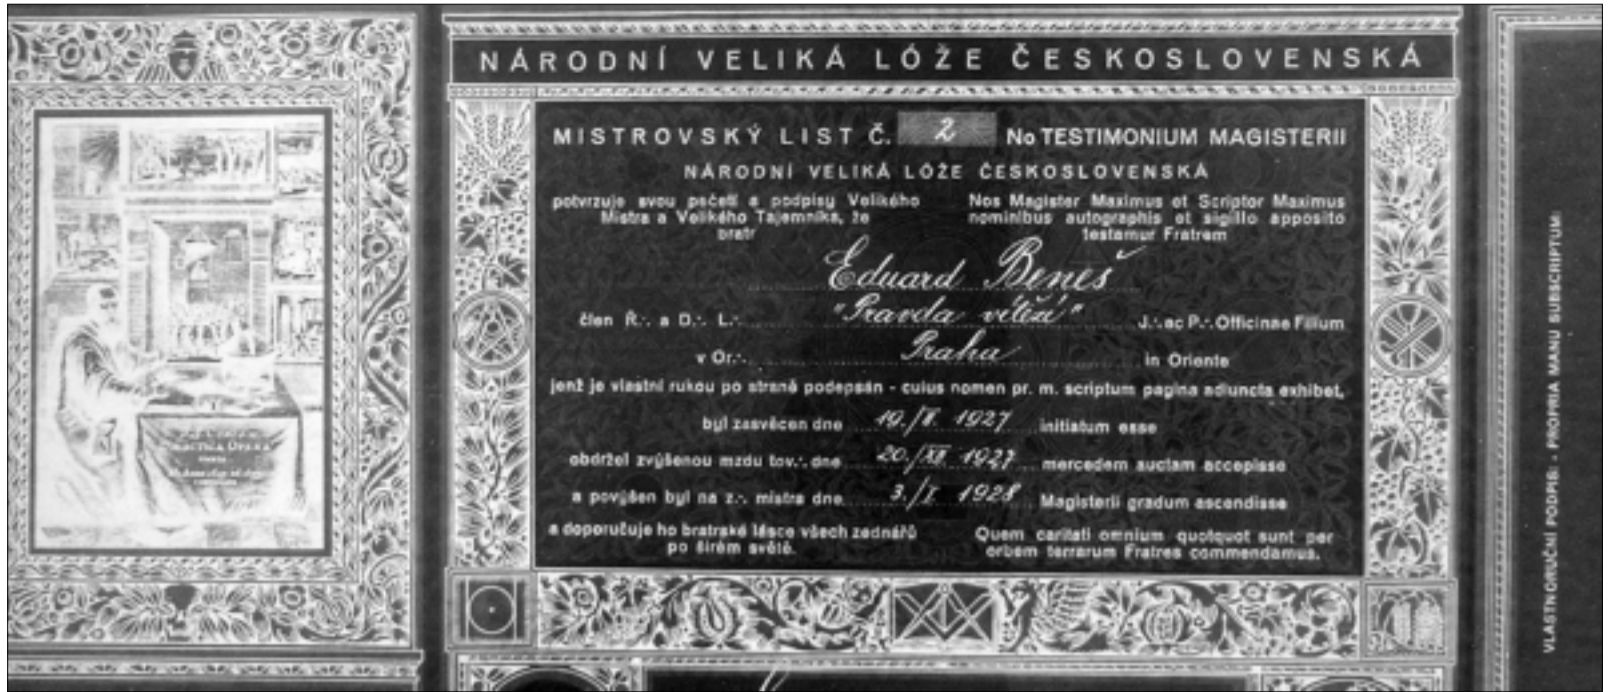 NÁRODNÍ VELIKÁ LÓŽE ČESKOSLOVENSKÁ
MISTROVSKÝ LIST Č. 2 No TESTIMONIUM MAGISTERII
NÁRODNÍ VELIKÁ LÓŽE ČESKOSLOVENSKÁ
potvrzuje svou pečetí a podpisy Velikého
Mistra a Velikého Tajemníka, že
bratr
Nos Magister Maximus et Scriptor Maximus
nominibus autographis et sigillo apposito
testamur Fratrem
Eduard Beneš
člen Ř∴ a D∴ L∴ "Pravda vítězí" J∴ ac P∴ Officinae Filium
v Or∴ Praha in Oriente
jenž je vlastní rukou po straně podepsán - cuius nomen pr. m. scriptum pagina adiuncta exhibet,
byl zasvěcen dne 19./II. 1927 initiatum esse
obdržel zvýšenou mzdu tov∴ dne 20./XII. 1927 mercedem auctam accepisse
a povýšen byl na z∴ mistra dne 3./I. 1928 Magisterii gradum ascendisse
a doporučuje ho bratrské lásce všech zednářů
po širém světě.
Quem caritati omnium quotquot sunt per
orbem terrarum Fratres commendamus.
VLASTNORUČNÍ PODPIS: - PROPRIA MANU SUBSCRIPTUM: